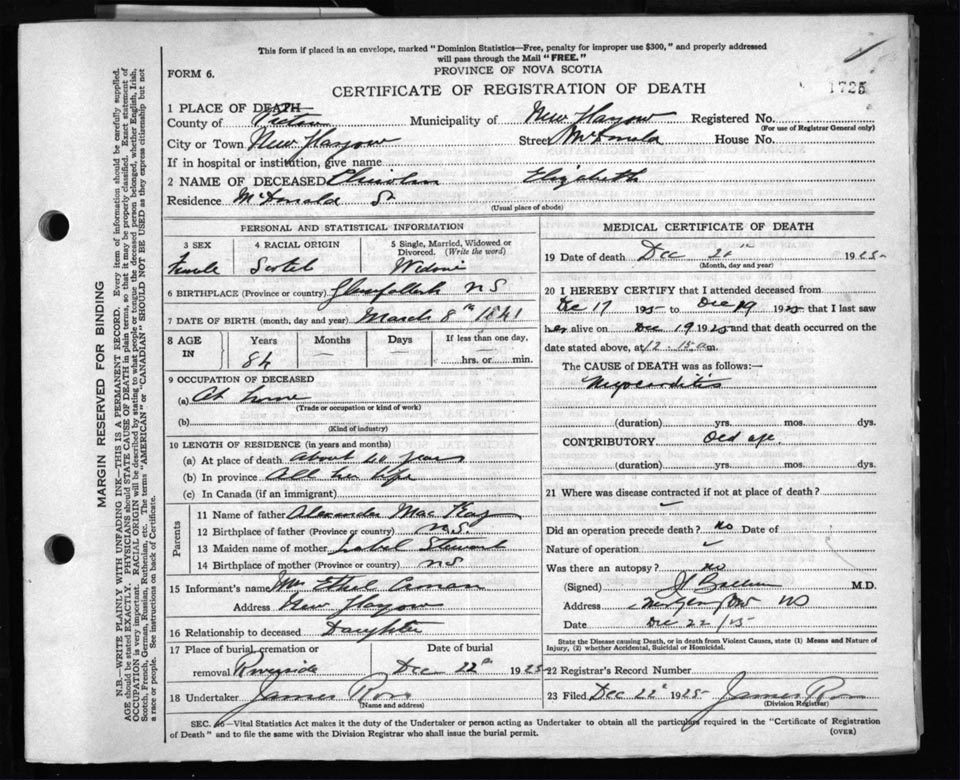 This form if placed in an envelope, marked "Dominion Statistics—Free, penalty for improper use $300," and properly addressed
will pass through the Mail "FREE."
FORM 6.
PROVINCE OF NOVA SCOTIA
CERTIFICATE OF REGISTRATION OF DEATH
1725
1 PLACE OF DEATH—
County of Pictou Municipality of New Glasgow Registered No.
(For use of Registrar General only)
City or Town New Glasgow Street McDonald House No.
If in hospital or institution, give name
2 NAME OF DECEASED Chisholm Elizabeth
Residence McDonald St
(Usual place of abode)
PERSONAL AND STATISTICAL INFORMATION
3 SEX 4 RACIAL ORIGIN 5 Single, Married, Widowed or
Divorced. (Write the word)
Female Scotch Widow
6 BIRTHPLACE (Province or country) NS
7 DATE OF BIRTH (month, day and year) March 8th 1841
8 AGE IN Years Months Days If less than one day,
84 hrs. or min.
9 OCCUPATION OF DECEASED
(a) At home
(Trade or occupation or kind of work)
(b)
(Kind of industry)
10 LENGTH OF RESIDENCE (in years and months)
(a) At place of death About 40 years
(b) In province All her life
(c) In Canada (if an immigrant)
Parents
11 Name of father Alexander MacKay
12 Birthplace of father (Province or country) N.S.
13 Maiden name of mother Isabel Stewart
14 Birthplace of mother (Province or country) NS
15 Informant's name Mrs Ethel
Address New Glasgow
16 Relationship to deceased Daughter
17 Place of burial, cremation or Date of burial
removal Riverside Dec 22d 1925
18 Undertaker James Ross
(Name and address)
MEDICAL CERTIFICATE OF DEATH
19 Date of death Dec 1925
(Month, day and year)
20 I HEREBY CERTIFY that I attended deceased from
Dec 17 1925 to Dec 19 1925 that I last saw
her alive on Dec 19 1925 and that death occurred on
date stated above, at 12.15 am.
The CAUSE of DEATH was as follows:—
Myocarditis
(duration) yrs. mos. dys.
CONTRIBUTORY Old age
(duration) yrs. mos. dys.
21 Where was disease contracted if not at place of death?
Did an operation precede death? no Date of
Nature of operation
Was there an autopsy? no
(Signed) M.D.
Address New Glasgow NS
Date Dec 22/25
State the Disease causing Death, or in death from Violent Causes, state (1) Means and Nature of
Injury, (2) whether Accidental, Suicidal or Homicidal.
22 Registrar's Record Number
23 Filed Dec 22d 1925 James Ross
(Division Registrar)
SEC. 46—Vital Statistics Act makes it the duty of the Undertaker or person acting as Undertaker to obtain all the particulars required in the "Certificate of Registration
of Death" and to file the same with the Division Registrar who shall issue the burial permit.
(OVER)
MARGIN RESERVED FOR BINDING
N.B.—WRITE PLAINLY WITH UNFADING INK—THIS IS A PERMANENT RECORD. Every item of information should be carefully supplied.
AGE should be stated EXACTLY. PHYSICIANS should STATE CAUSE OF DEATH in plain terms, so that it may be properly classified. Exact statement of
OCCUPATION is very important. RACIAL ORIGIN will be described by stating to what people or tongue the deceased person belonged, whether English, Irish,
Scotch, French, German, Russian, Ruthenian, etc. The terms "AMERICAN" or "CANADIAN" SHOULD NOT BE USED as they express citizenship but not
a race or people. See instructions on back of Certificate.